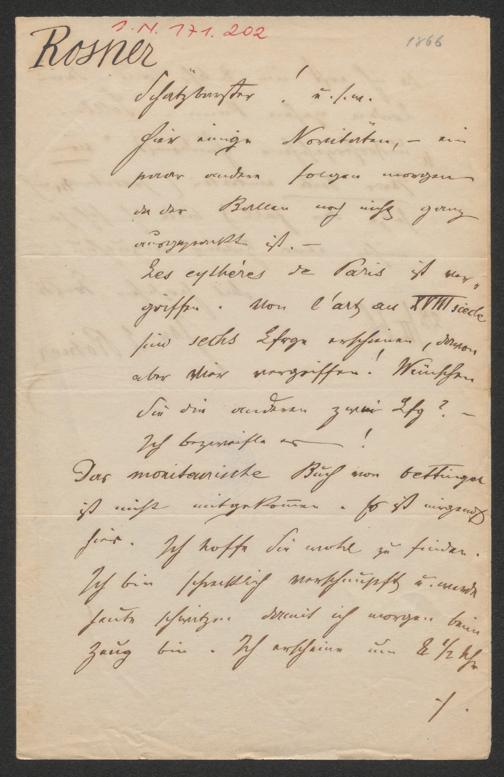 I.N. 171.202
Rosner
1866
Schätzbarster! u.s.w.
Hier einige Novitäten, – ein
paar andere folgen morgen
da der Ballen noch nicht ganz
ausgepackt ist. –
Les cythères de Paris ist ver-
griffen. Von l'art au XVIII siecle
sind sechs Lfrge erschienen, davon
aber vier vergriffen! Wünschen
Sie die anderen zwei Lfg? –
Ich bezweifle es – !
Das Buch von Oettinger
ist nicht mitgekommen. Es ist nirgends
hier. Ich hoffe Sie wohl zu finden.
Ich bin schrecklich verschnupft u. werde
heute schwitzen damit ich morgen beim
Zeug bin. Ich erscheine um 8 1/2 Uhr
-/.